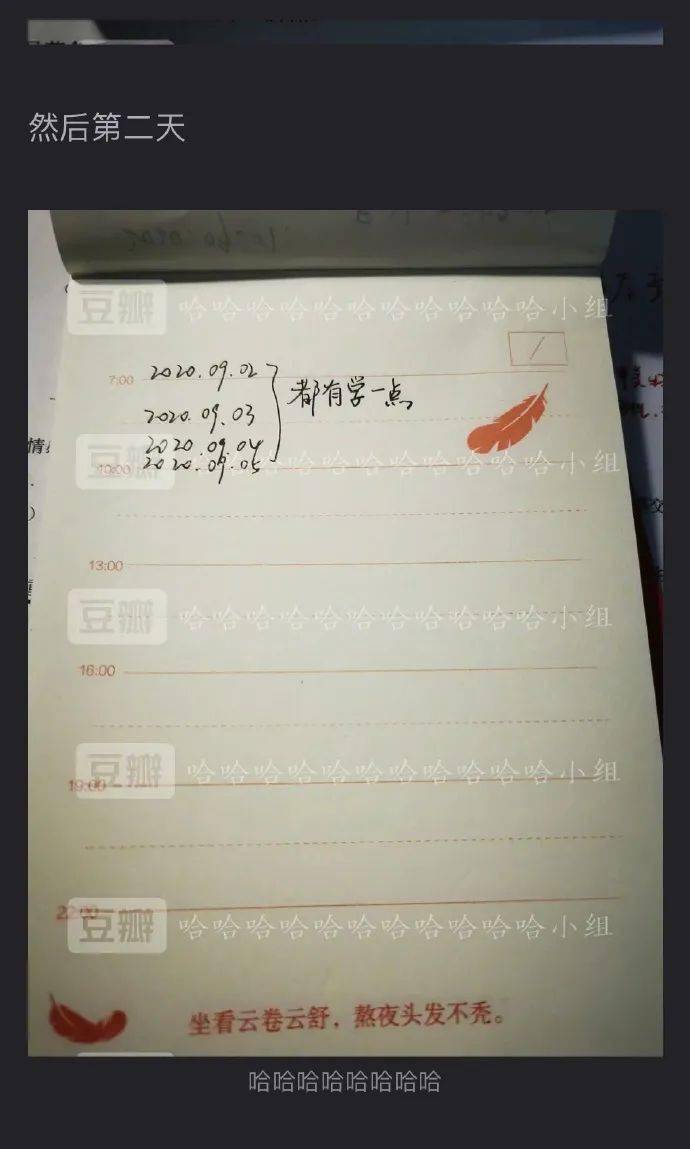 然后第二天
豆瓣 哈哈哈哈哈哈哈哈哈哈哈小组
7:00 2020.09.02
都有学一点
2020.09.03
2020.09.04
10:00 2020.09.05
豆瓣 哈哈哈哈哈哈哈哈哈哈哈小组
13:00
豆瓣 哈哈哈哈哈哈哈哈哈哈哈小组
16:00
19:00
豆瓣 哈哈哈哈哈哈哈哈哈哈哈小组
22:00
豆瓣 哈哈哈哈哈哈哈哈哈哈哈小组
坐看云卷云舒，熬夜头发不秃。
哈哈哈哈哈哈哈哈